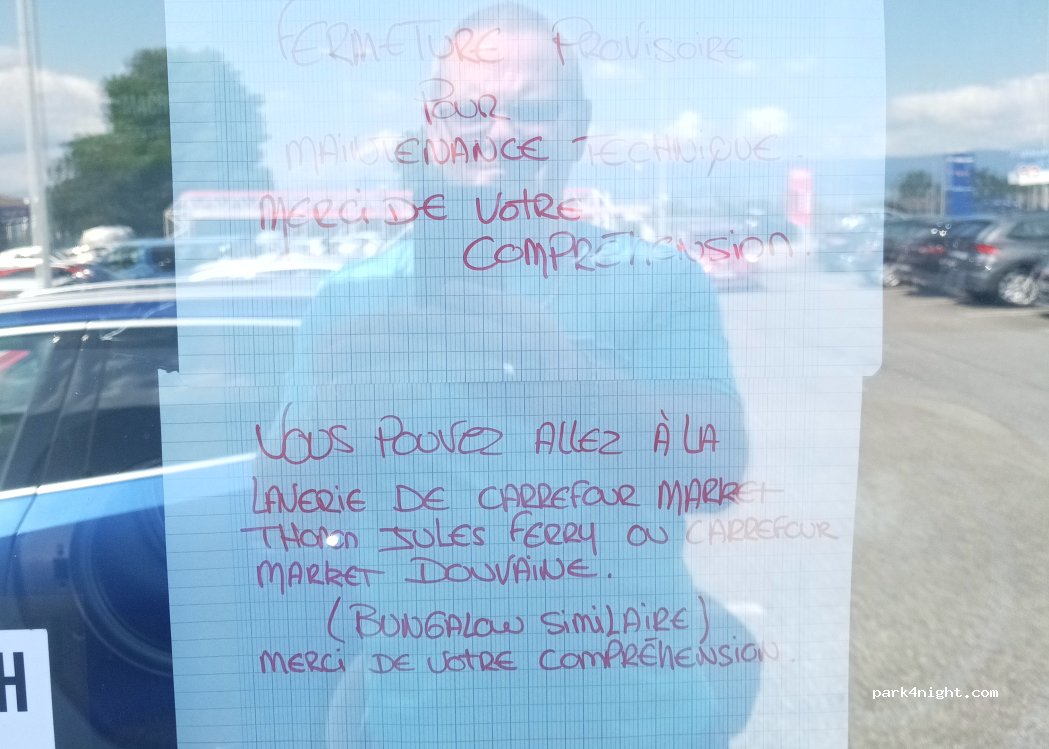 FERMETURE PROVISOIRE
POUR
MAINTENANCE TECHNIQUE.
MERCI DE VOTRE
COMPRÉHENSION.
VOUS POUVEZ ALLEZ À LA
LAVERIE DE CARREFOUR MARKET
THONON JULES FERRY OU CARREFOUR
MARKET DOUVAINE.
(BUNGALOW SIMILAIRE)
MERCI DE VOTRE COMPRÉHENSION.
H
park4night.com